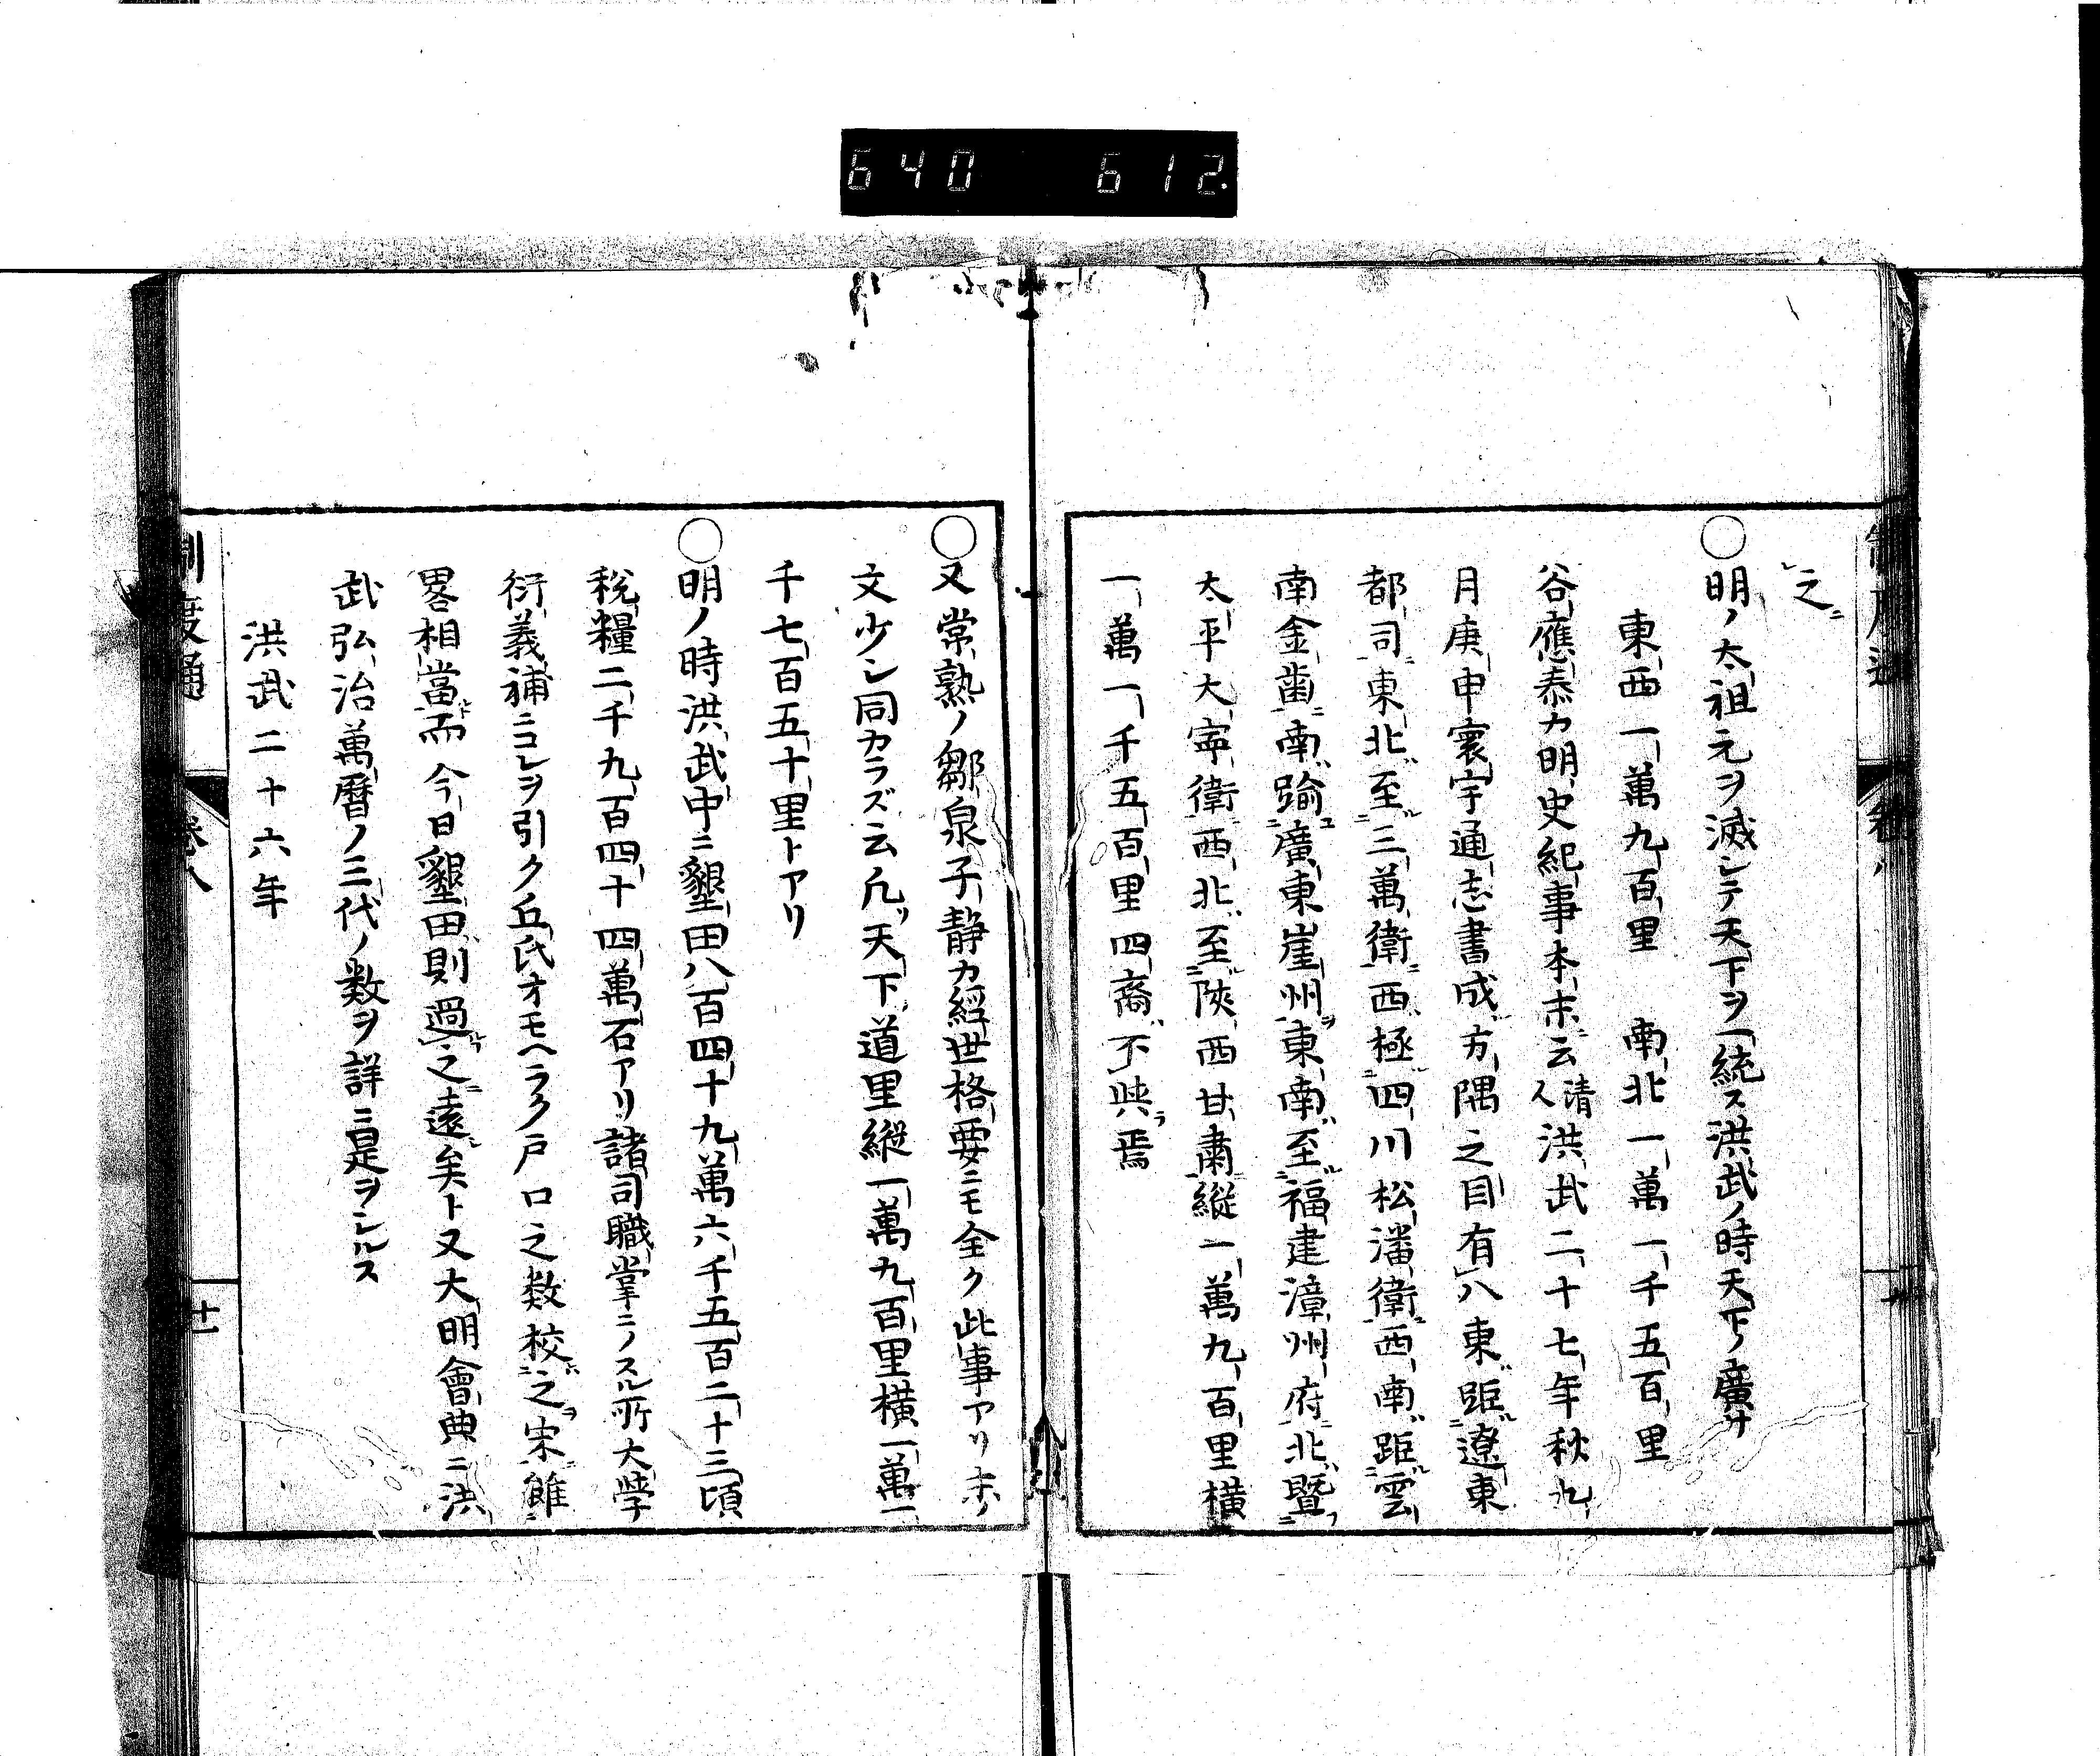 640 612.
之ニ
○明ノ太祖元ヲ滅シテ天下ヲ一統ス洪武ノ時天下ノ廣サ
東西一萬九百里 南北一萬一千五百里
谷應泰カ明史紀事本末ニ云清人洪武二十七年秋九
月庚申寰宇通志書成方隅之目有八東距遼東
都司東北至三萬衛西極四川松潘衛西南距雲
南金齒南踰廣東崖州東南至福建漳州府北曁
太平大寧衛西北至陝西甘肅縱一萬九百里橫
一萬一千五百里四裔不與焉
○又常熟ノ鄒泉子靜カ經世格要ニモ全ク此事アリ末ノ
文少シ同カラズ云凡ソ天下道里縱一萬九百里橫一萬一
千七百五十里トアリ
○明ノ時洪武中ニ墾田八百四十九萬六千五百二十三頃
税糧二千九百四十四萬石アリ諸司職掌ニノスル所大學
衍義補ニコレヲ引ク丘氏オモヘラク戸口之数校之宋雖
畧相當而今日墾田則過之遠矣ト又大明會典ニ洪
武弘治萬暦ノ三代ノ数ヲ詳ニ是ヲシルス
洪武二十六年
制度通 卷八 十一